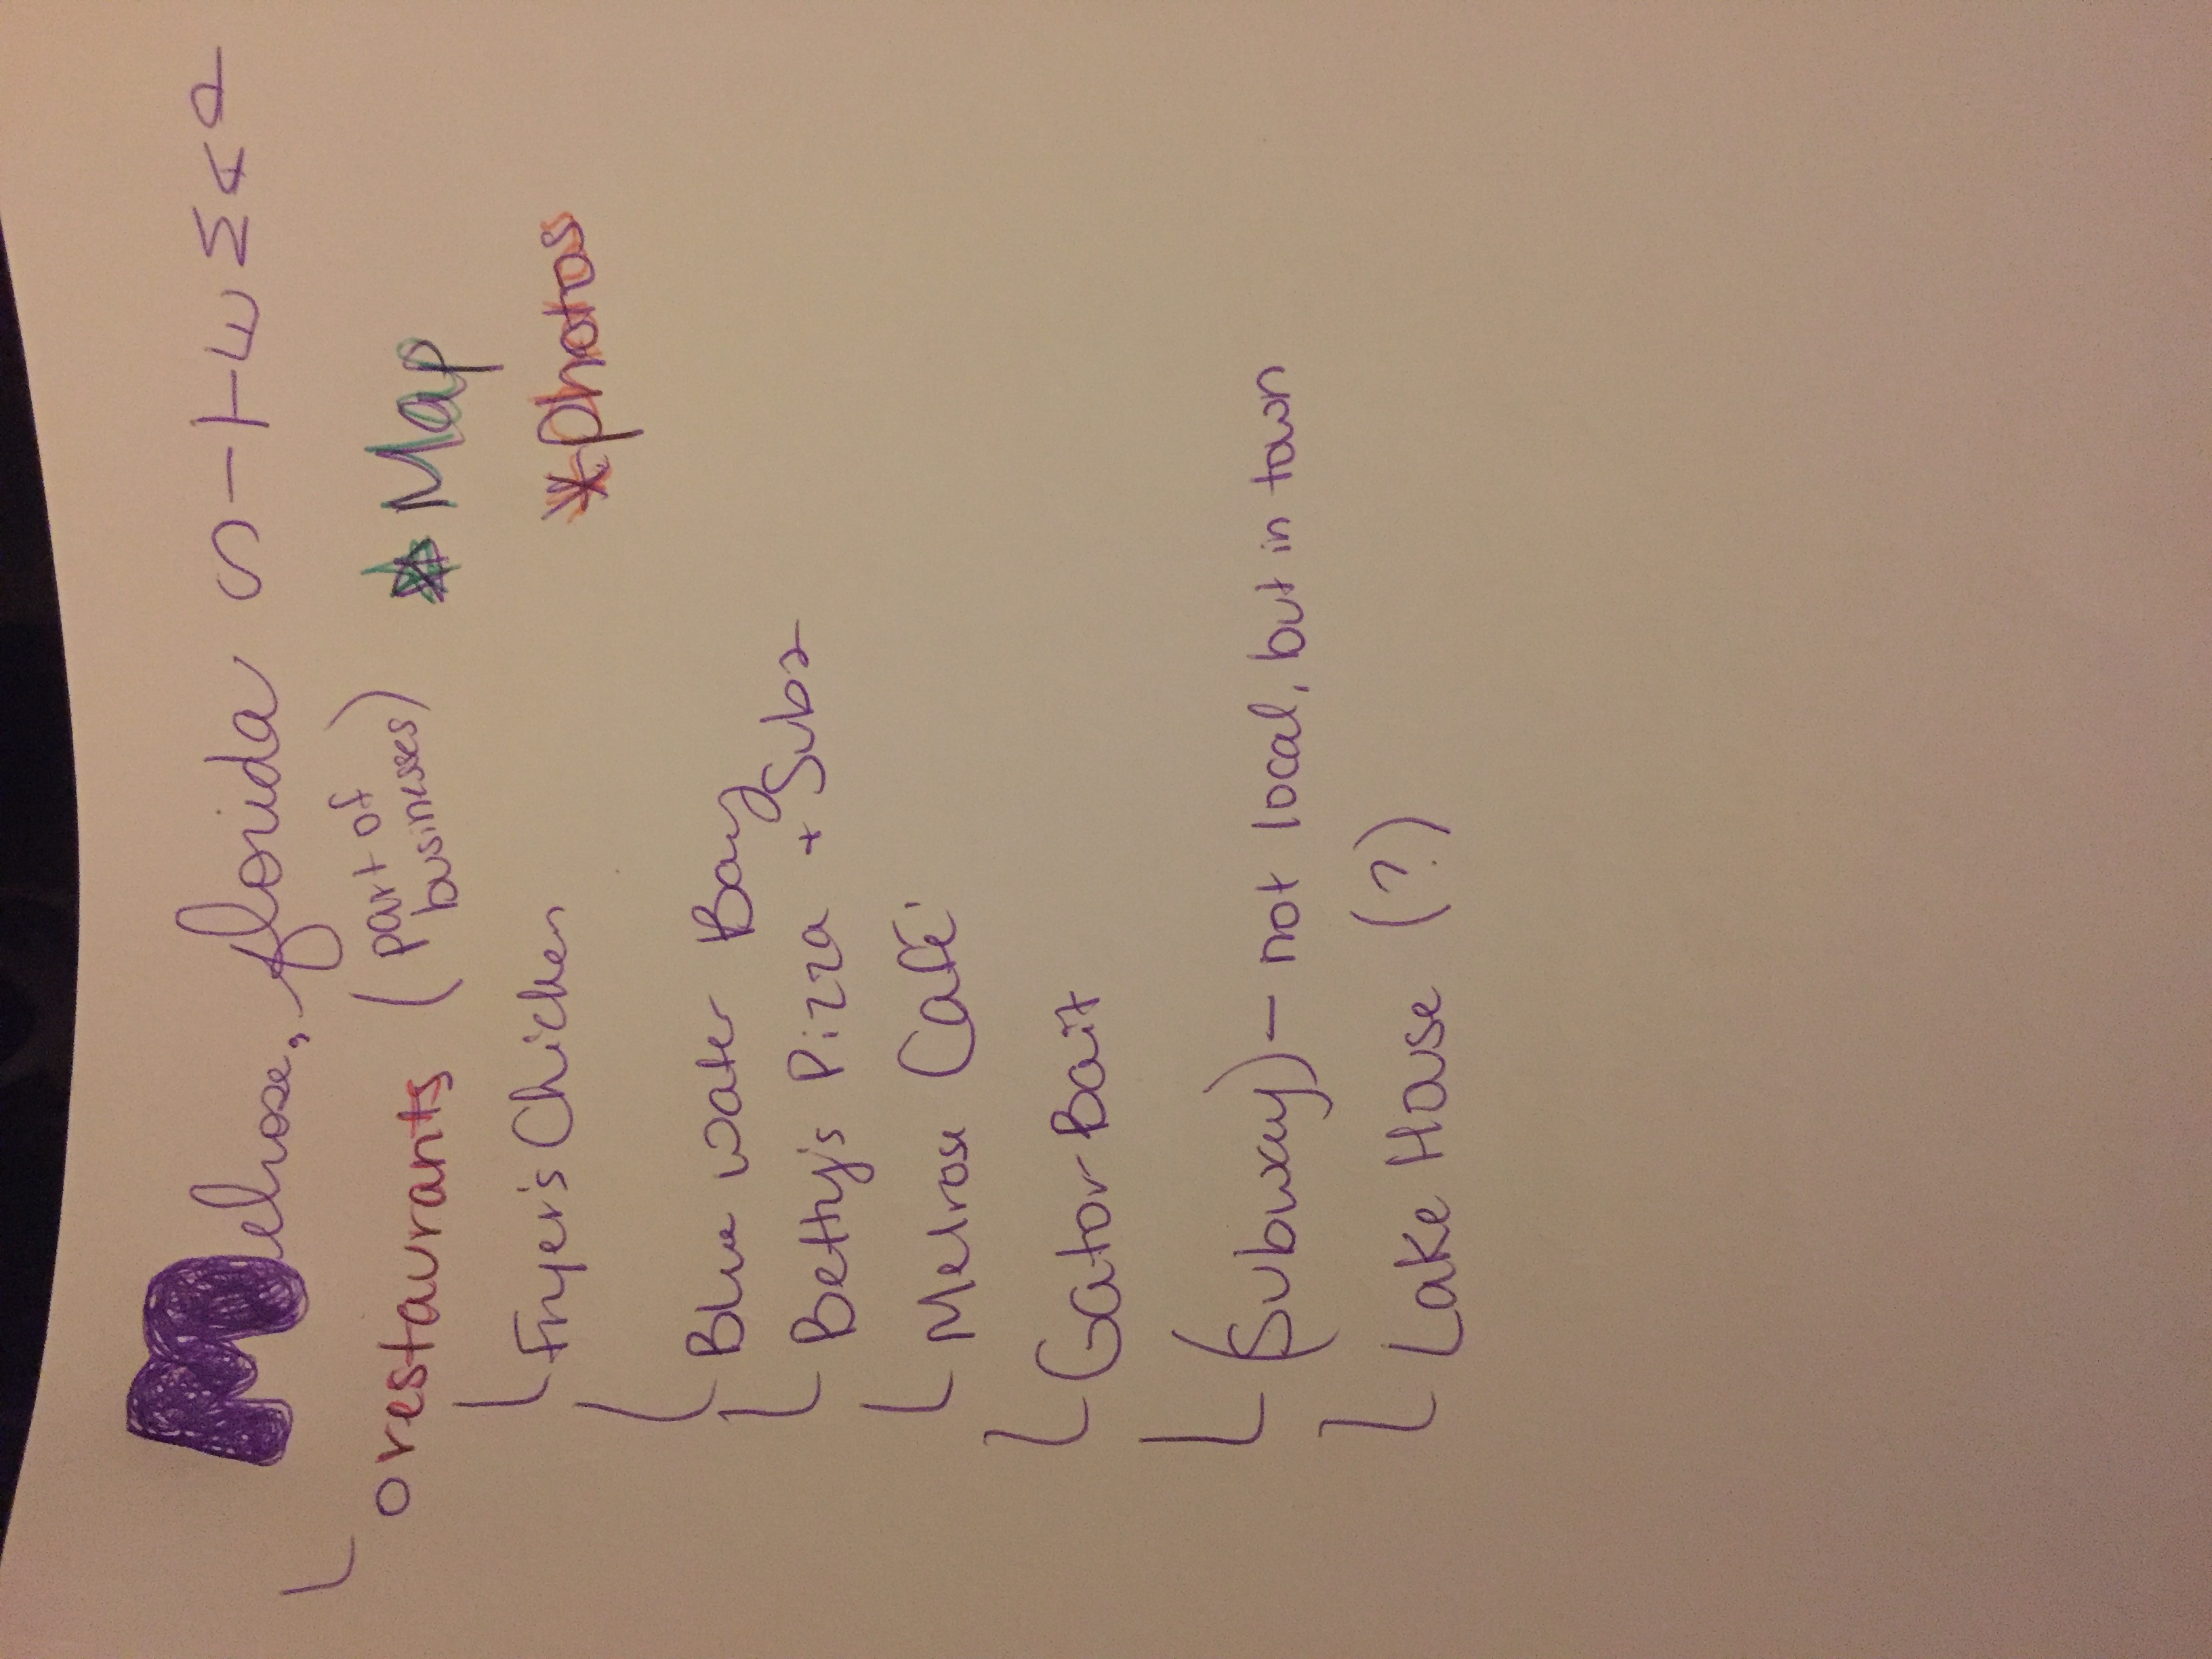 Melrose, florida SITEMAP
restaurants (part of businesses) ☆ Map
* photos
Fryer's Chicken
Blue water Bay
Betty's Pizza + Subs
Melrose Café
Gator Bait
(Subway) - not local, but in town
Lake House (?)